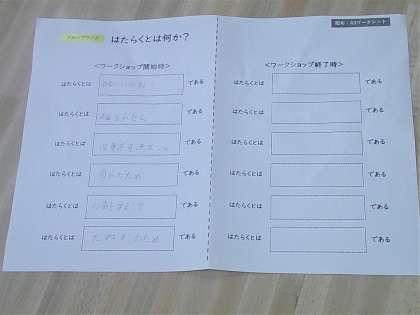 はたらくとは何か?
配布:A3ワークシート
<ワークショップ開始時>
はたらくとは である
はたらくとは である
はたらくとは である
はたらくとは 自分のため である
はたらくとは である
はたらくとは である
<ワークショップ終了時>
はたらくとは である
はたらくとは である
はたらくとは である
はたらくとは である
はたらくとは である
はたらくとは である